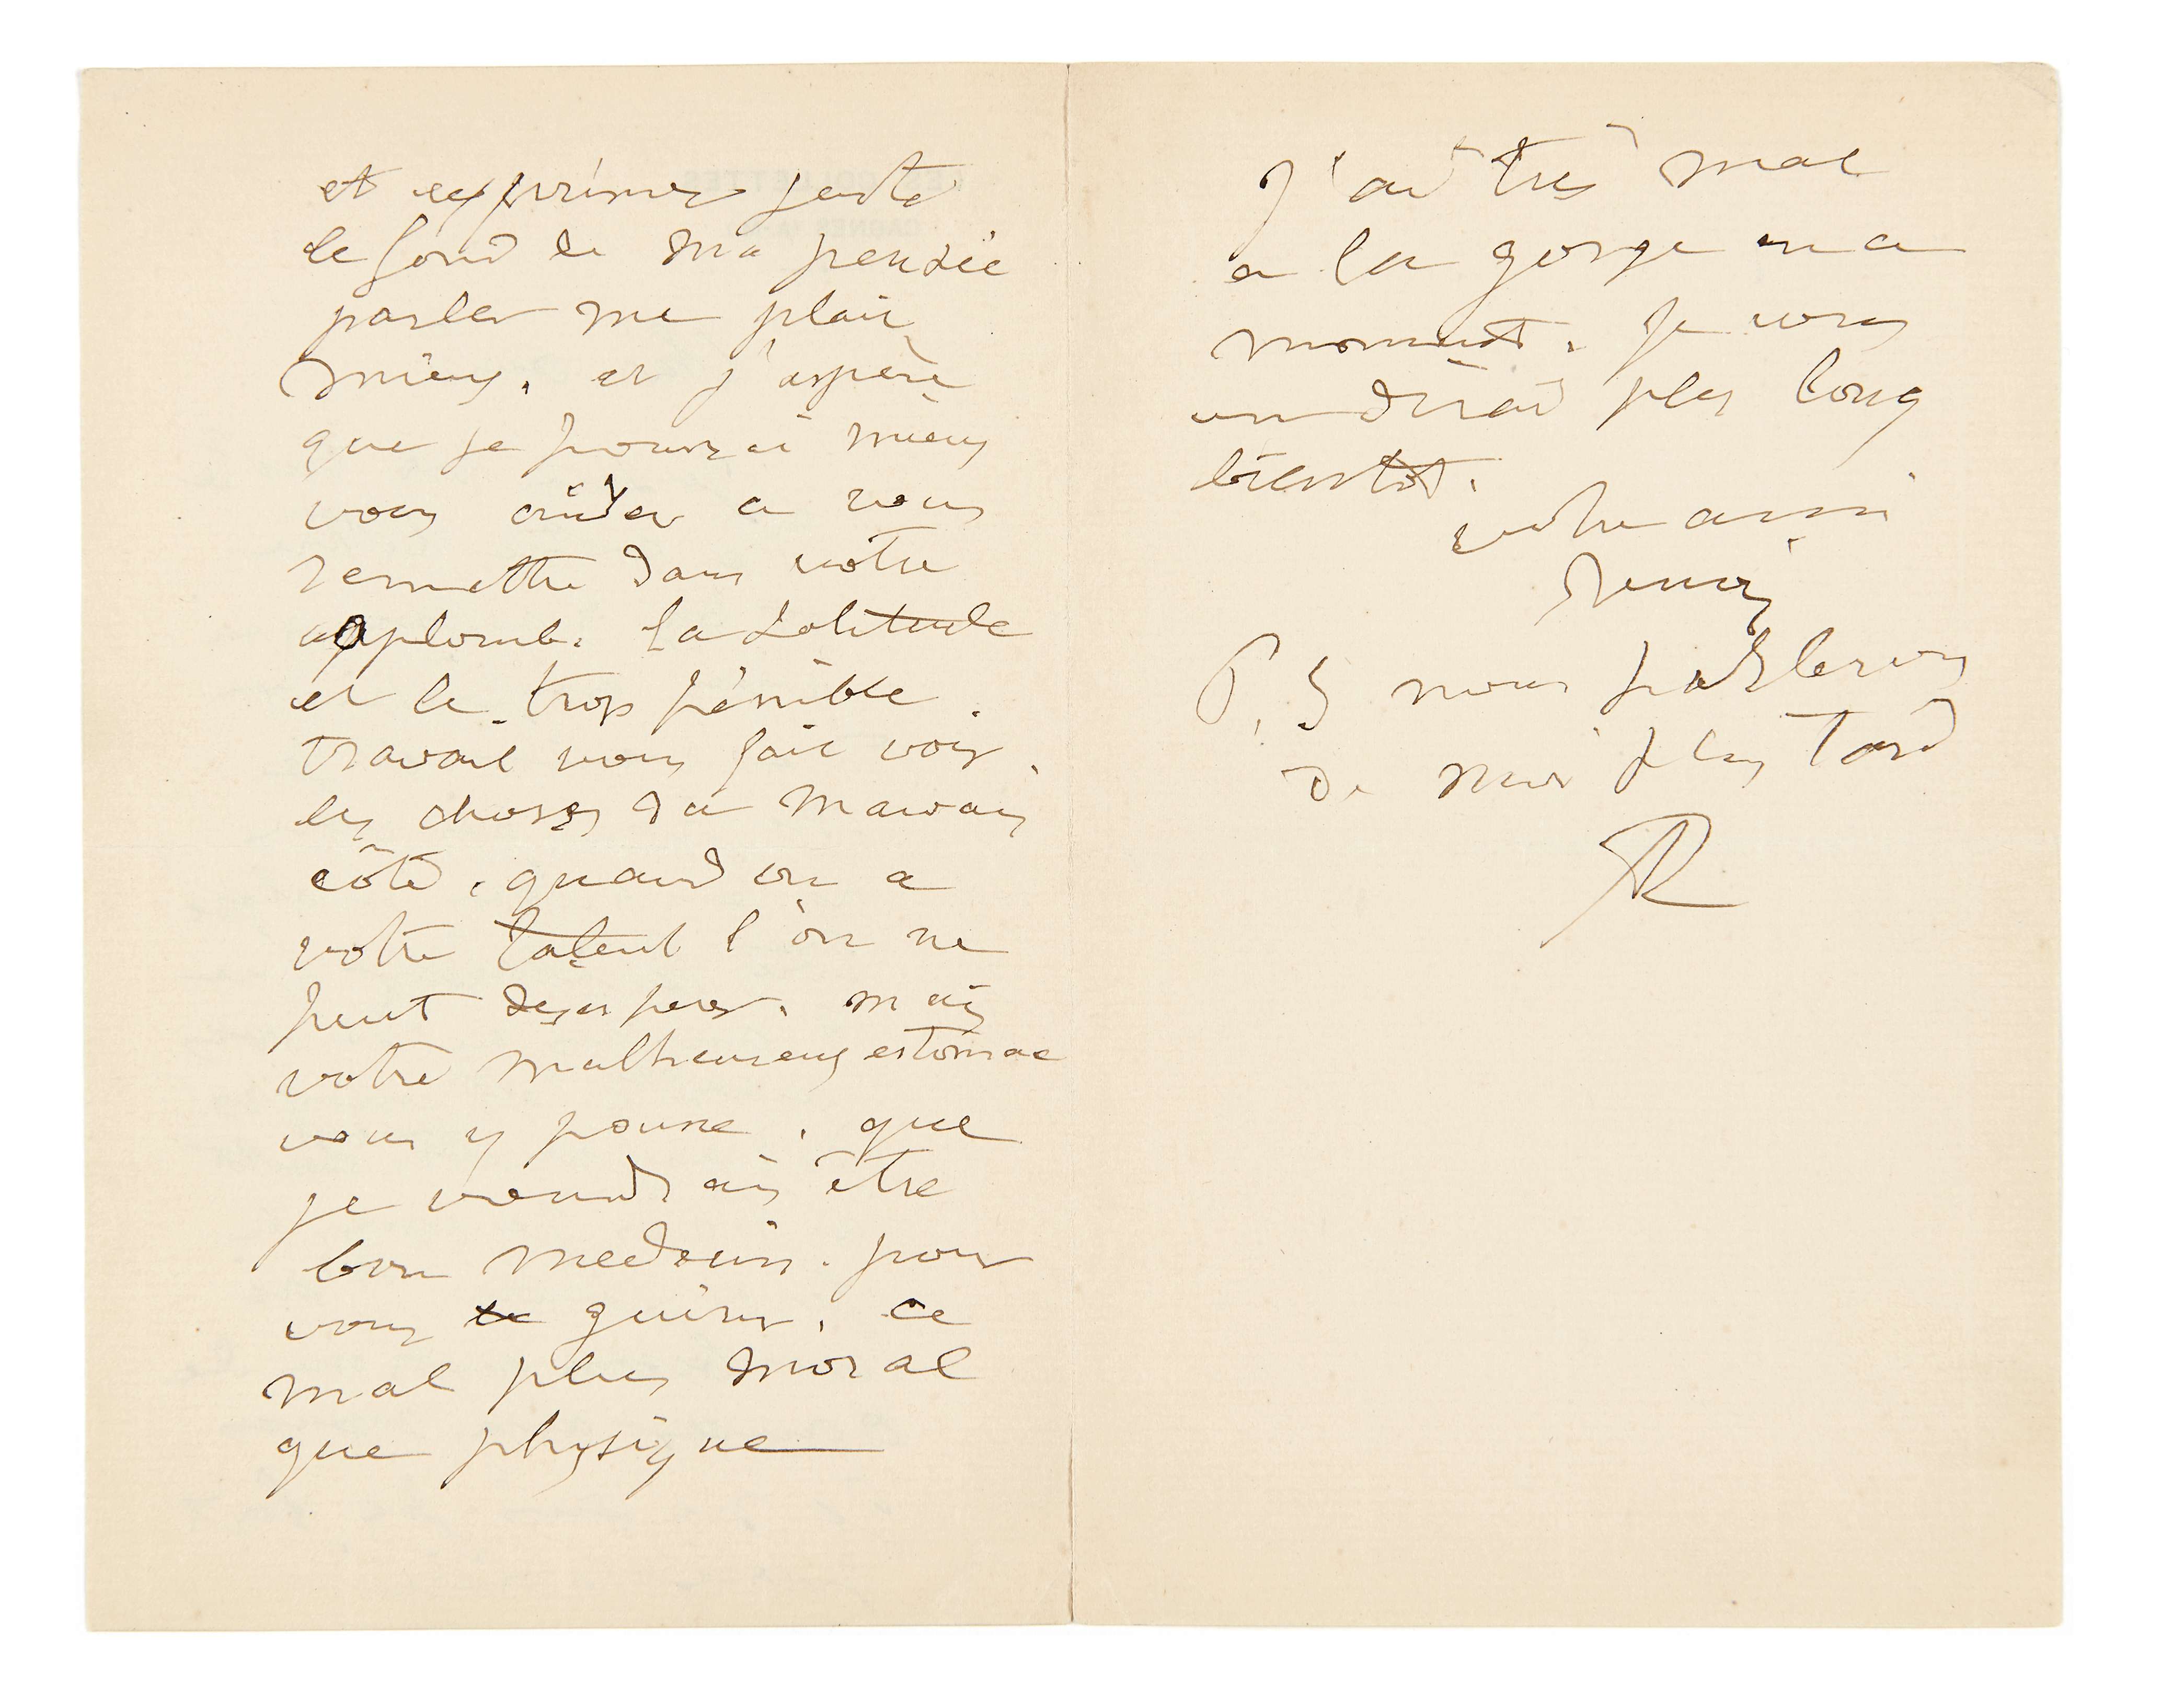 et exprimer juste
le fond de ma pensée
parler me plait
mieux. et j'espère
que je pourrai mieux
vous aider a vous
remettre dans votre
applomb. la solitude
et le trop pénible
travail vous fait voir
les choses du mauvais
côté. quand on a
votre talent l'on ne
peut desesperer. mais
votre malheureux estomac
vous y pousse. que
je voudrais être
bon medecin. pour
vous guérir. ce
mal plus moral
que physique
J'ai très mal
a la gorge en ce
moment. je vous
en dirai plus long
bientôt.
votre ami
Renoir
P. S nous parlerons
de moi plus tard
AR